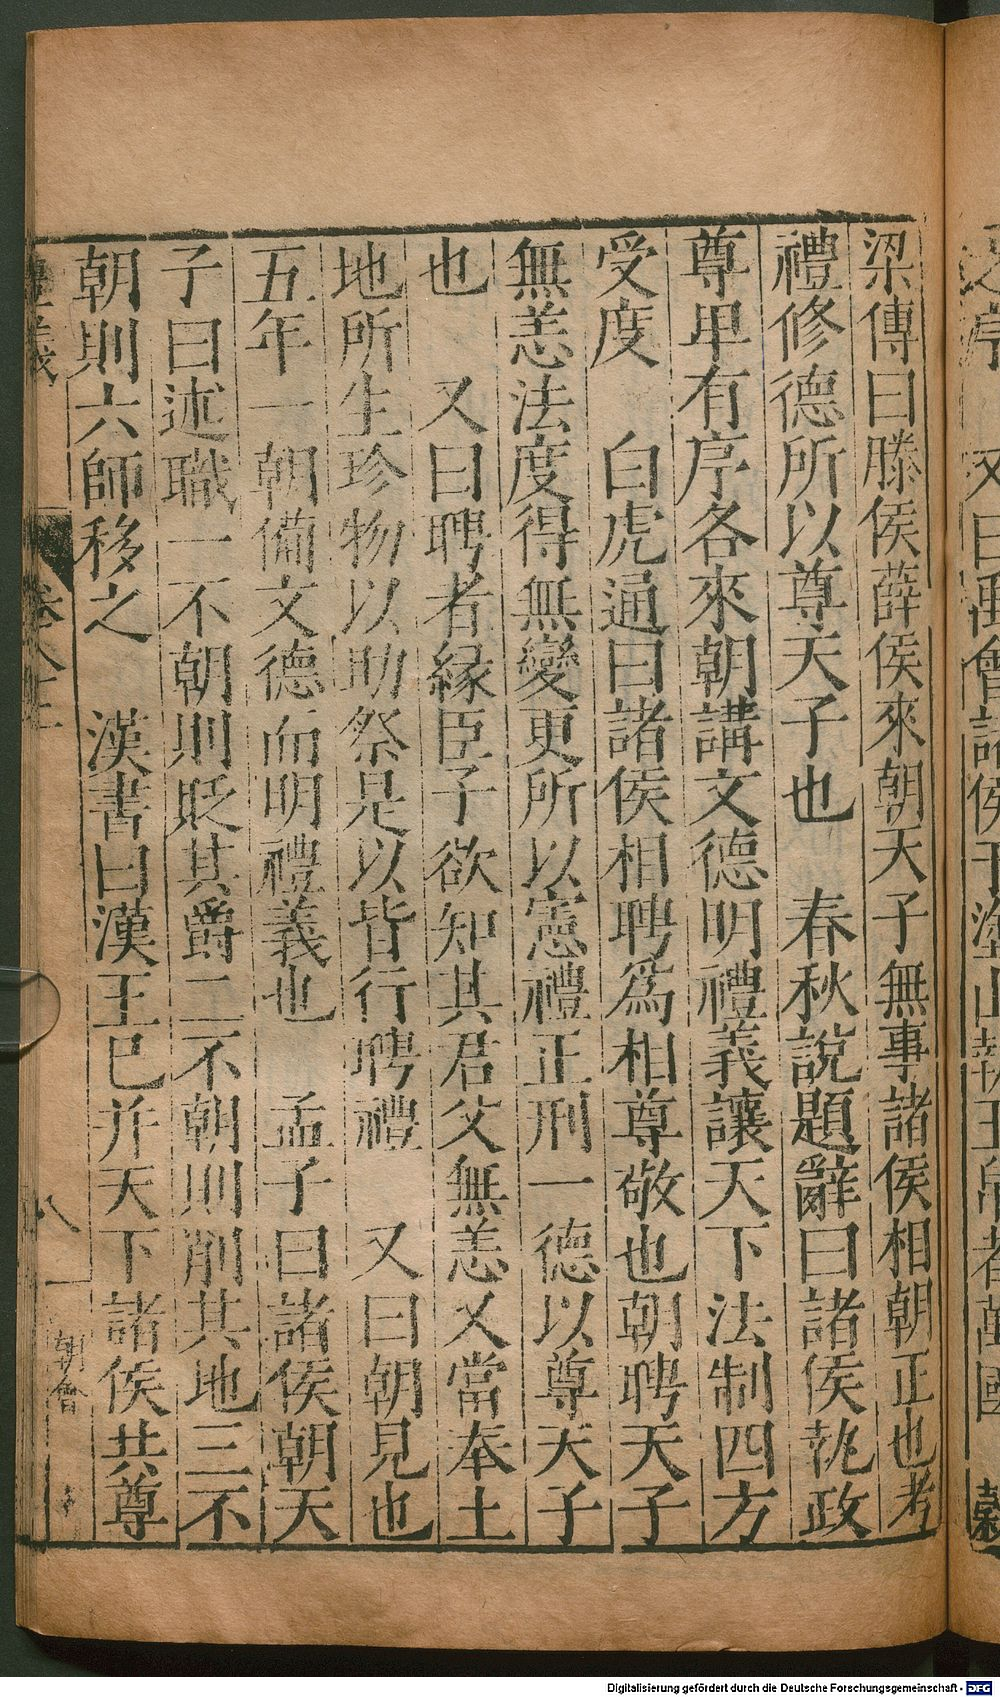 梁傳曰滕侯薛侯來朝天子無事諸侯相朝正也考
禮修德所以尊天子也　春秋說題辭曰諸侯執政
尊卑有序各來朝講文德明禮義讓天下法制四方
受度　白虎通曰諸侯相聘爲相尊敬也朝聘天子
無恙法度得無變更所以憲禮正刑一德以尊天子
也　又曰聘者緣臣子欲知其君父無恙又當奉土
地所生珍物以助祭是以皆行聘禮　又曰朝見也
五年一朝備文德而明禮義也　孟子曰諸侯朝天
子曰述職一不朝則貶其爵二不朝則削其地三不
朝則六師移之　漢書曰漢王已并天下諸侯共尊
八
朝會
Digitalisierung gefördert durch die Deutsche Forschungsgemeinschaft - DFG